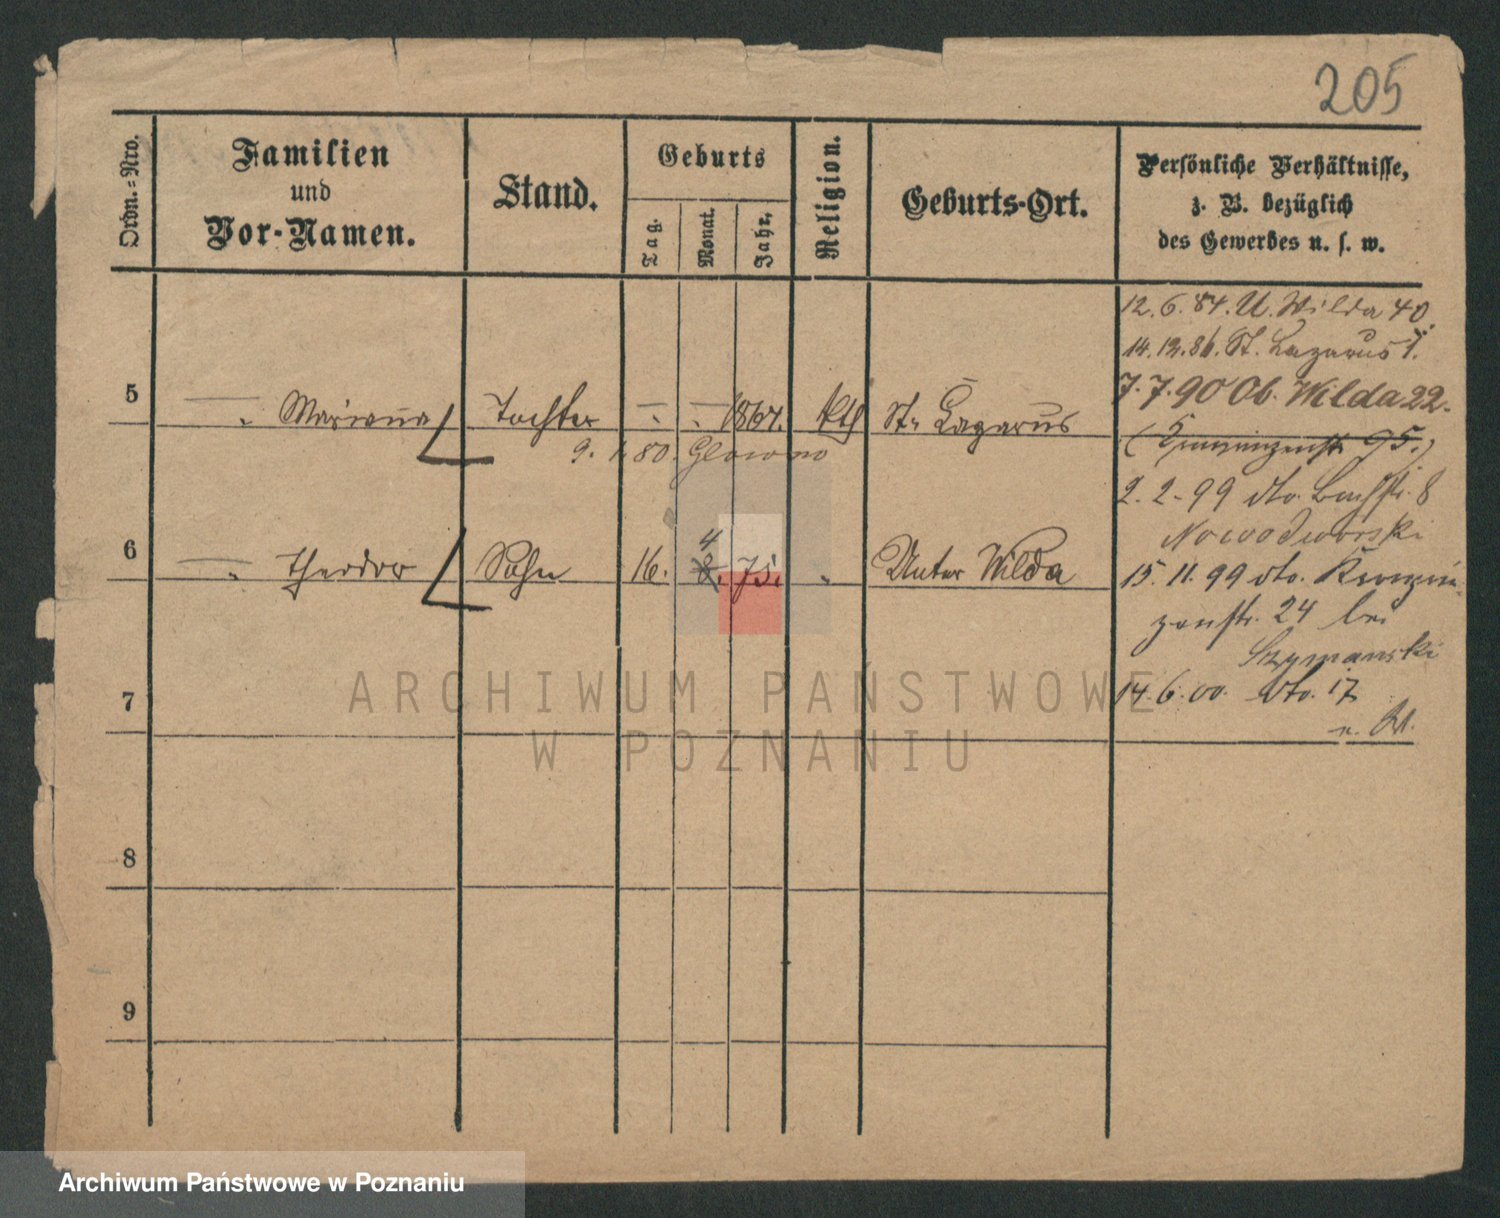 205
Ordn.=Nro.
Familien
und
Vor-Namen.
Stand.
Geburts
Tag.
Monat.
Jahr.
Religion.
Geburts-Ort.
Persönliche Verhältnisse,
z. B. bezüglich
des Gewerbes u. s. w.
12. 6. 84. U. Wilda 40.
14. 12. 86. St. Lazarus 7.
7. 7. 90 Ob. Wilda 22.
5 — „ Marianna Tochter — „ — „ 1867. kth St. Lazarus
9. 1. 80. Glowno
( 95.)
2. 2. 99 dto. Bachstr. 8
Nowodworski
6 — „ Theodor Sohn 16. 4 75. „ Unter Wilda
15. 11. 99 dto. Kronprin-
zenstr. 24 bei
Szymanski
7
14. 6. 00. dto. 17
8
9
ARCHIWUM PAŃSTWOWE
W POZNANIU
Archiwum Państwowe w Poznaniu